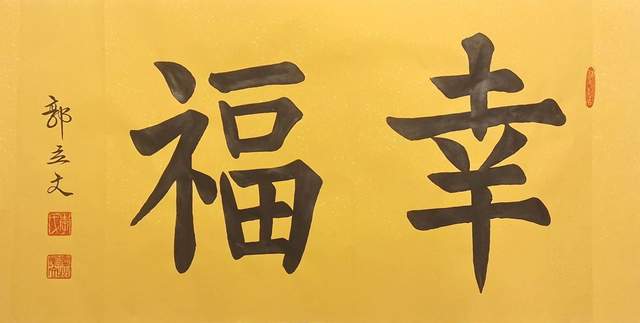 幸福
郭立文